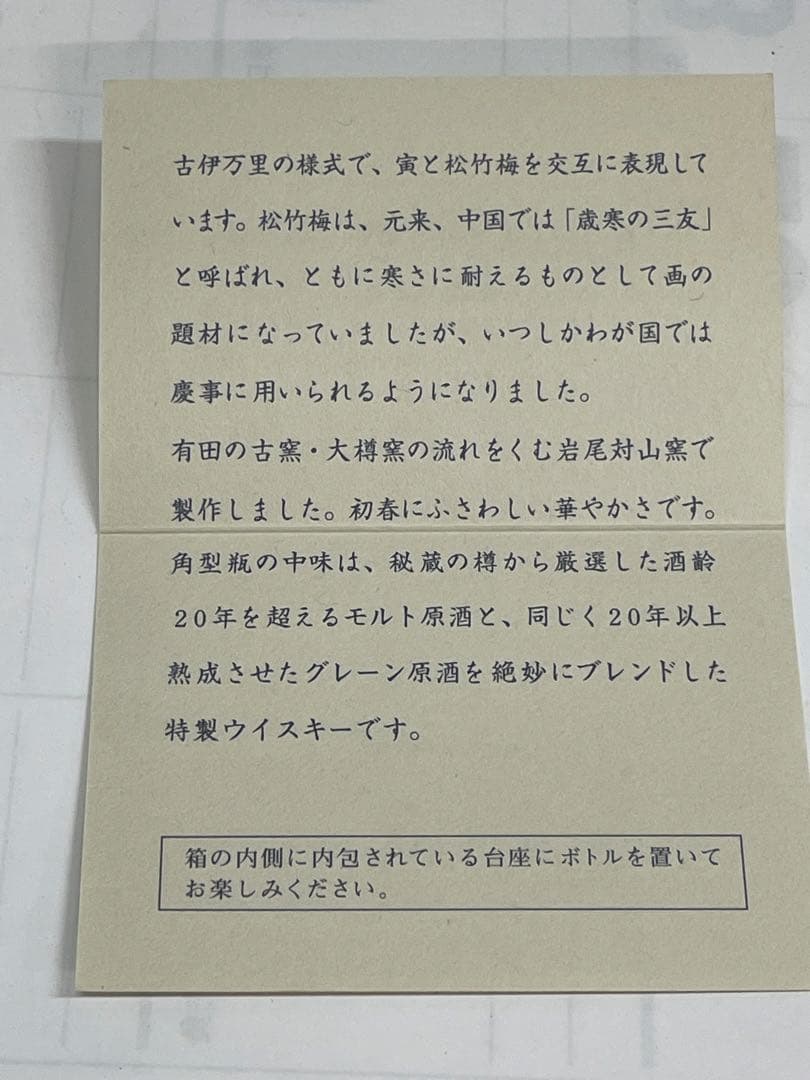 古伊万里の様式で、寅と松竹梅を交互に表現して
います。松竹梅は、元来、中国では「歳寒の三友」
と呼ばれ、ともに寒さに耐えるものとして画の
題材になっていましたが、いつしかわが国では
慶事に用いられるようになりました。
有田の古窯・大樽窯の流れをくむ岩尾対山窯で
製作しました。初春にふさわしい華やかさです。
角型瓶の中味は、秘蔵の樽から厳選した酒齢
20年を超えるモルト原酒と、同じく20年以上
熟成させたグレーン原酒を絶妙にブレンドした
特製ウイスキーです。
箱の内側に内包されている台座にボトルを置いて
お楽しみください。